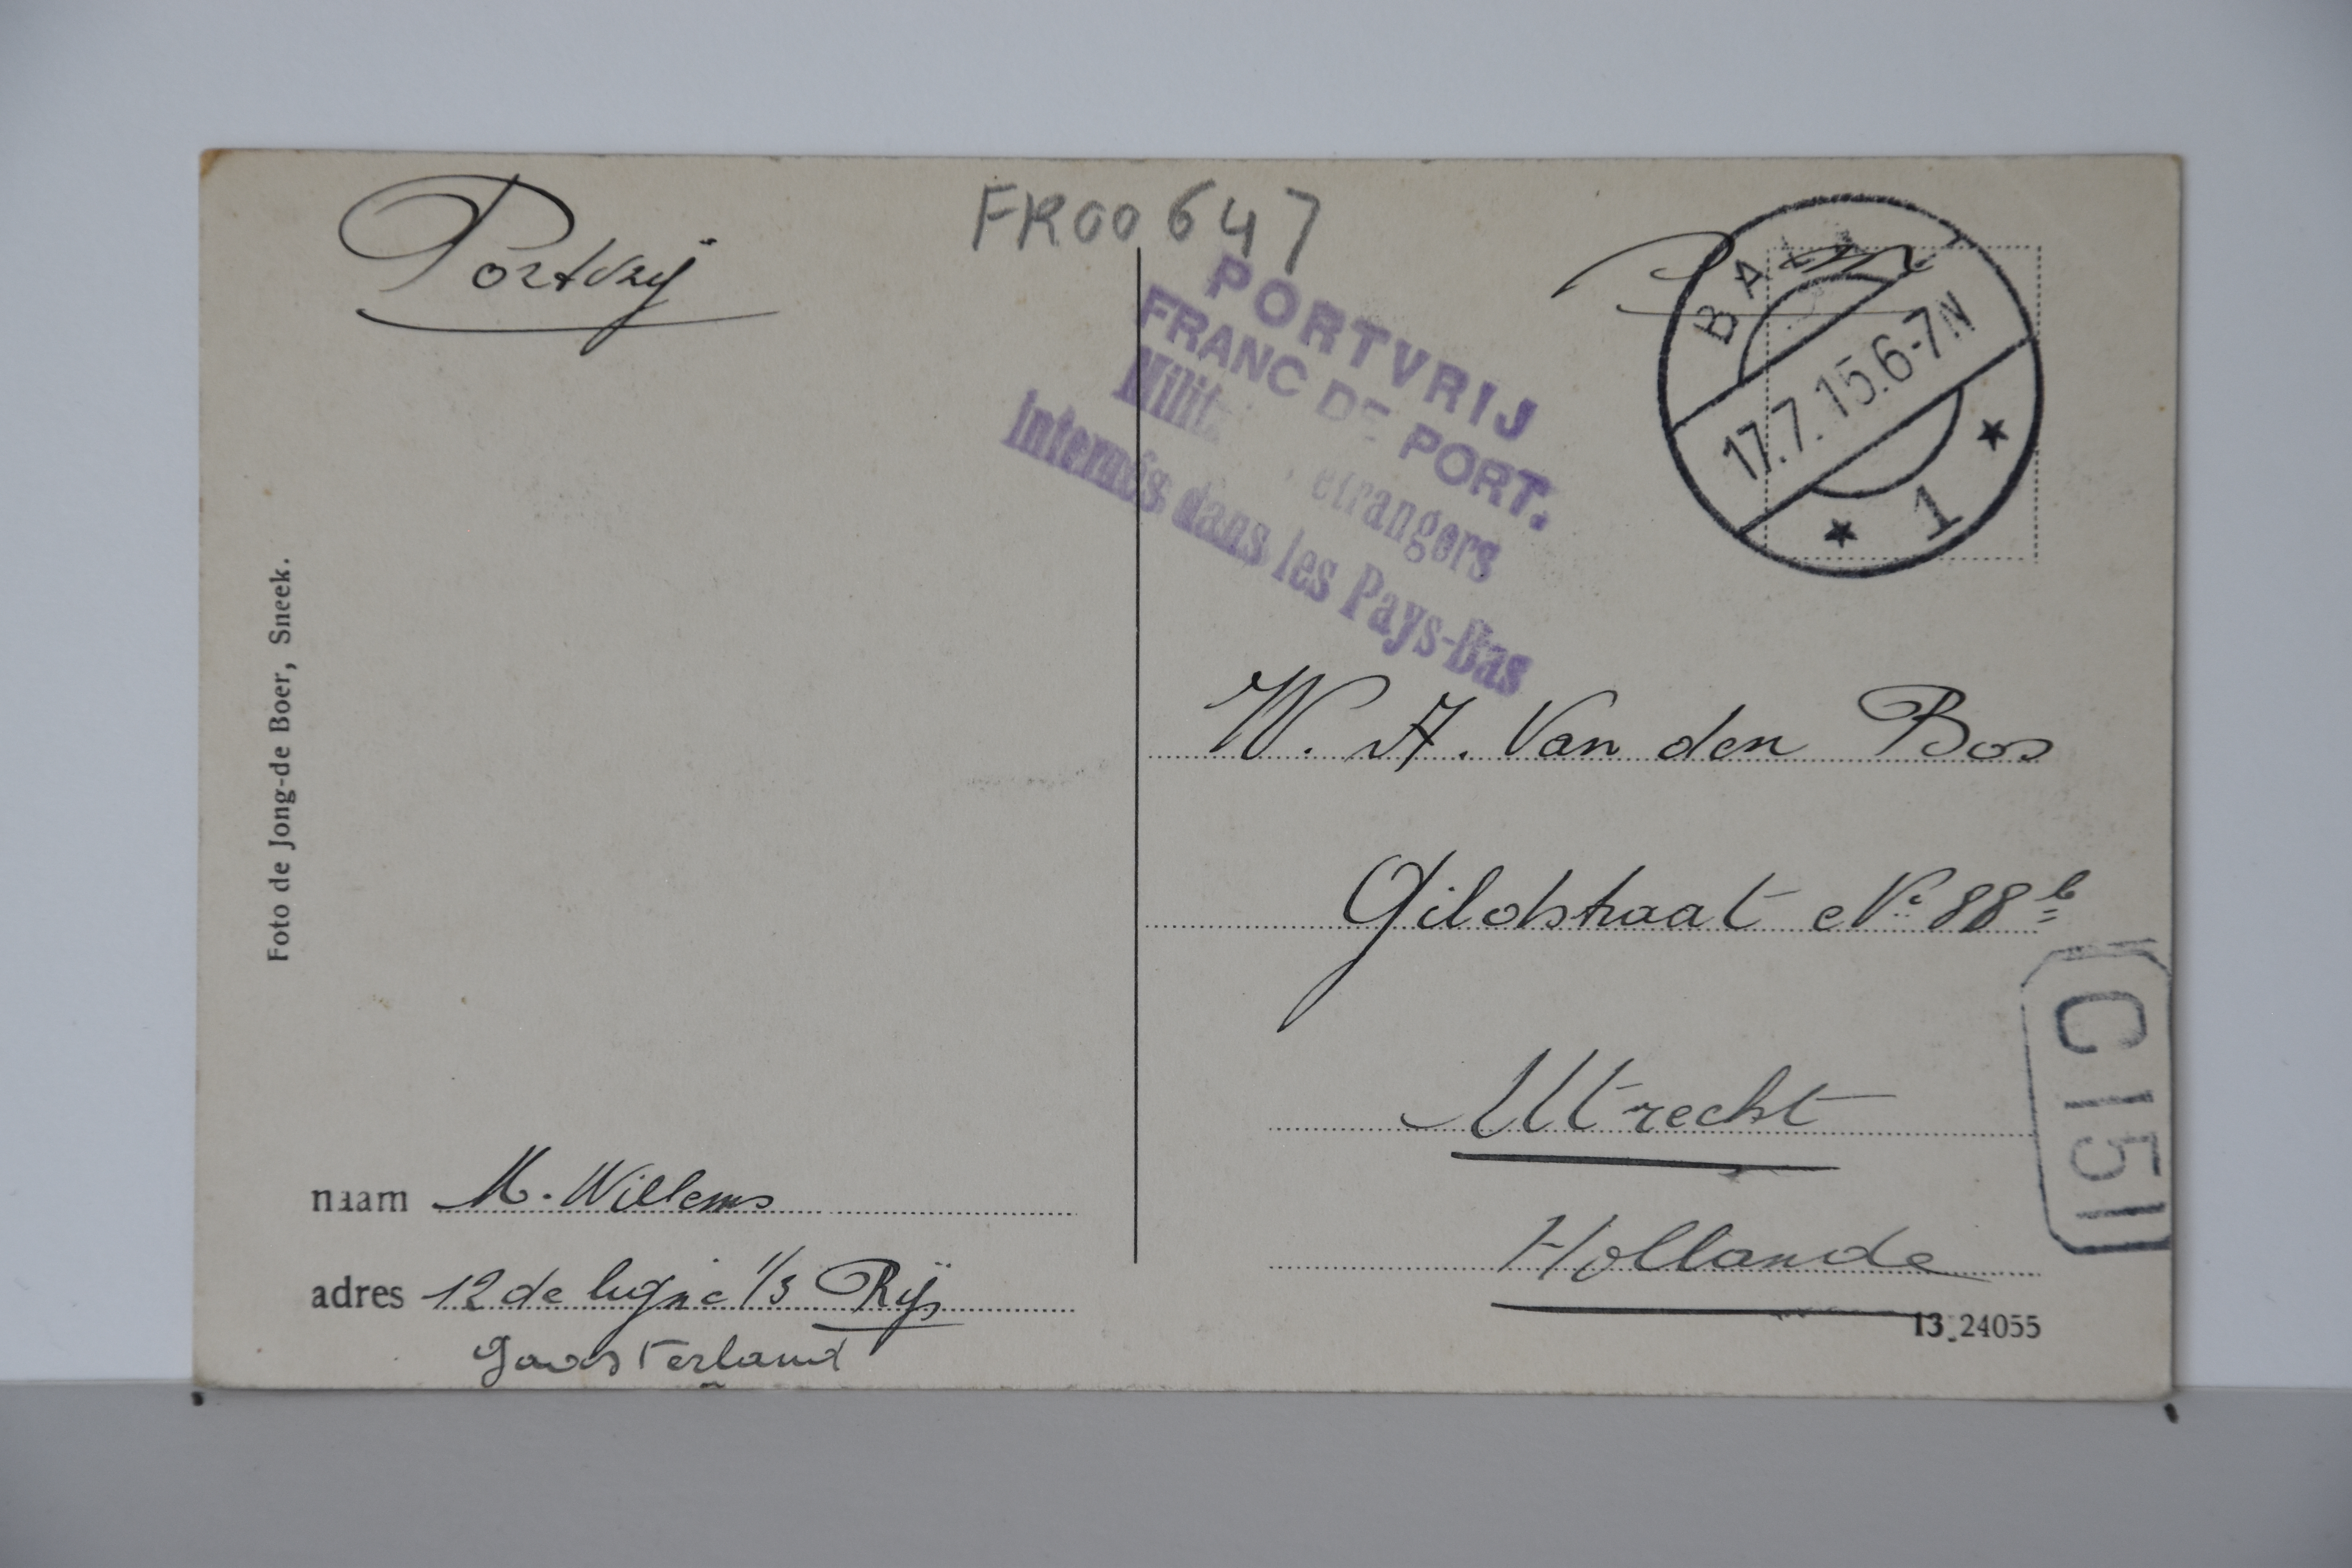 Portvrij
FR00647
PORTVRIJ
FRANC DE PORT.
Milit étrangers
Internés dans les Pays-Bas
BALK
17.7.15.6-7N
1
W. A. Van den Bos
Gildstraat No 88 b
Utrecht
Hollande
C151
13_24055
Foto de Jong-de Boer, Sneek.
naam M. Willems
adres 12 de ligne 1/3 Rijs
Gaasterland